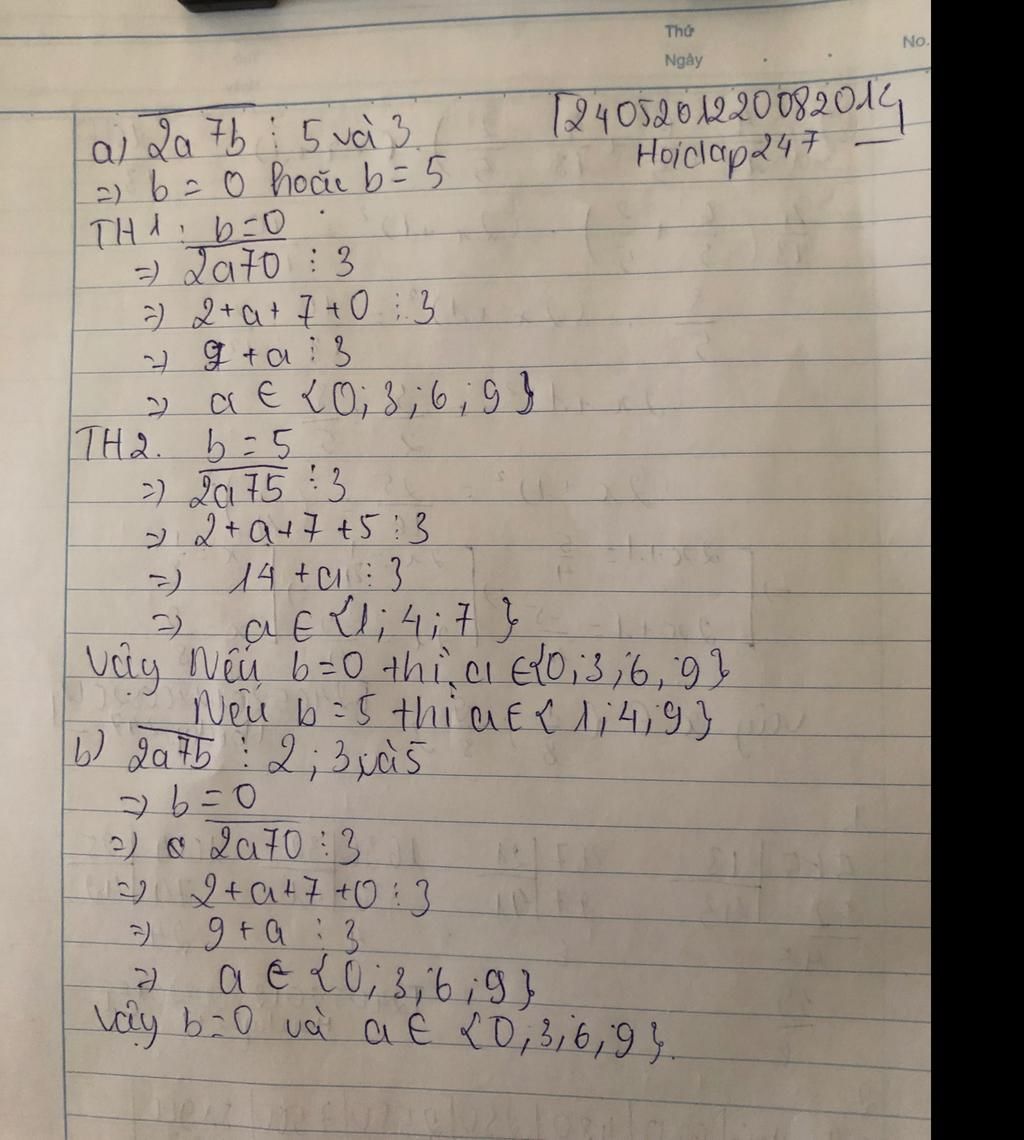 Thứ
Ngày
No.
[2405201220082014]
Hoidap247
a) 2a7b ⋮ 5 và 3
=) b = 0 hoặc b = 5
TH1: b=0
=) 2a70 ⋮ 3
=) 2+a+7+0 ⋮ 3
=) 9 +a ⋮ 3
=) a ∈ {0; 3; 6; 9}
TH2. b = 5
=) 2a75 ⋮ 3
=) 2+a+7+5 ⋮ 3
=) 14 +a ⋮ 3
=) a ∈ {1; 4; 7}
Vậy Nếu b=0 thì a ∈{0; 3; 6; 9}
Nếu b=5 thì a∈{1; 4; 9}
b) 2a7b ⋮ 2; 3 và 5
=) b = 0
=) 2a70 ⋮ 3
=) 2+a+7+0 ⋮ 3
=) 9+a ⋮ 3
=) a ∈ {0; 3; 6; 9}
Vậy b=0 và a ∈ {0; 3; 6; 9}.